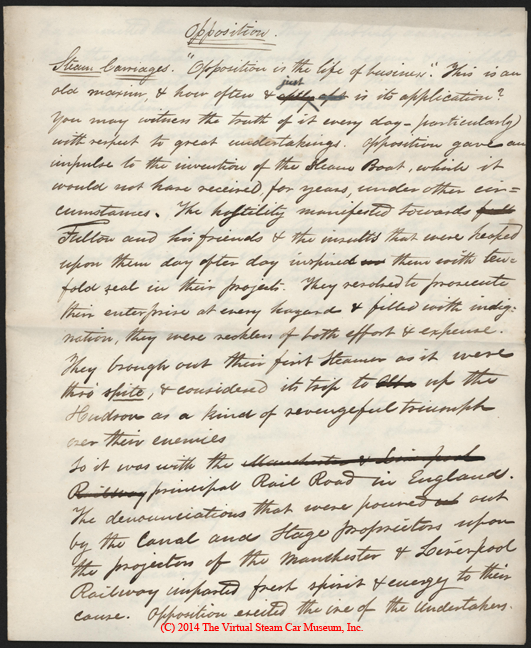 Opposition.
Steam Carriages. "Opposition is the life of business." This is an
just
old maxim, & how often & apt is its application?
You may witness the truth of it every day - particularly
with respect to great undertakings. Opposition gave an
impulse to the invention of the Steam Boat, which it
would not have received, for years, under other cir=
cumstances. The hostility manifested towards
Fulton and his friends & the insults that were heaped
upon them day after day inspired them with ten-
fold zeal in their project. They resolved to prosecute
their enterprise at every hazard & filled with indig-
nation, they were reckless of both effort & expense.
They brought out their first Steamer as it were
thro spite, & considered its trip to Alba up the
Hudson as a kind of revengeful triumph
over their enemies
So it was with the Manchester & Liverpool
Railway principal Rail Road in England.
The denunciations that were poured out
by the Canal and Stage proprietors upon
the projectors of the Manchester & Liverpool
Railway imparted fresh spirit & energy to their
cause. Opposition excited the ire of the undertakers.
(C) 2014 The Virtual Steam Car Museum, Inc.